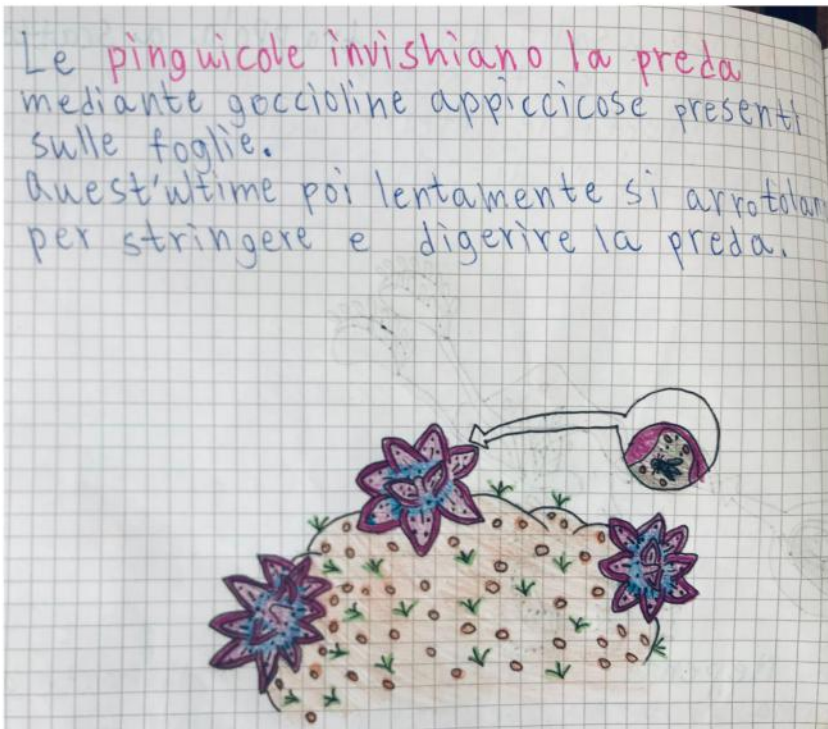 Le pinguicole invishiano la preda
mediante goccioline appiccicose presenti
sulle foglie.
Quest'ultime poi lentamente si arrotolan
per stringere e digerire la preda.